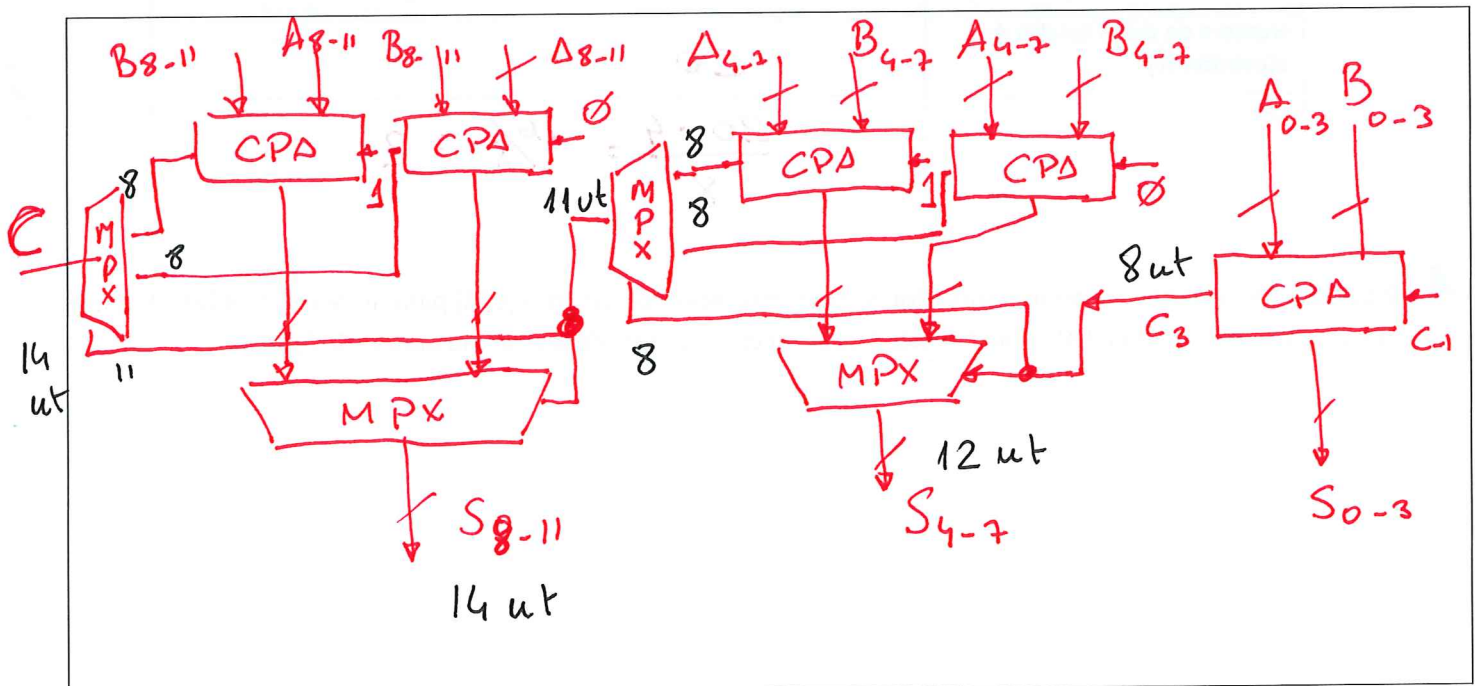 B8-11 A8-11 B8-11 Δ8-11 Δ4-7 B4-7 A4-7 B4-7
A0-3 B0-3
CPA 1 CPA Ø
8 CPA 1 CPA Ø
11ut MPX 8
C MPX 8 8
8ut CPA
C3 C-1
14 ut 11 8
MPX MPX
12 ut
S8-11 S4-7 S0-3
14 ut